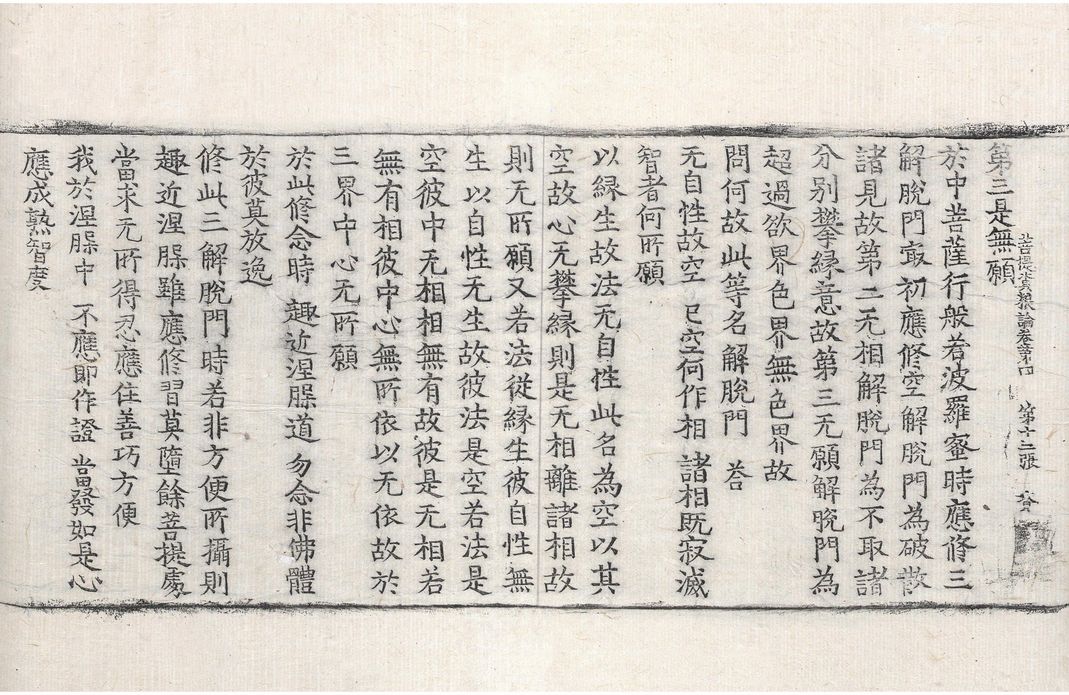 菩提資粮論卷第四 第十二張
第三是無願
於中菩薩行般若波羅蜜時應修三
解脫門㝡初應修空解脫門為破散
諸見故第二无相解脫門為不取諸
分別攀緣意故第三无願解脫門為
超過欲界色界無色界故
問何故此等名解脫門 荅
无自性故空 已空何作相 諸相旣寂滅
智者何所願
以緣生故法无自性此名為空以其
空故心无攀緣則是无相離諸相故
則无所願又若法從緣生彼自性無
生以自性无生故彼法是空若法是
空彼中无相相無有故彼是无相若
無有相彼中心無所依以无依故於
三界中心无所願
於此修念時 趣近涅槃道 勿念非佛體
於彼莫放逸
修此三解脫門時若非方便所攝則
趣近涅槃雖應修習莫墮餘菩提處
當求无所得忍應住善巧方便
我於涅槃中 不應即作證 當發如是心
應成熟智度